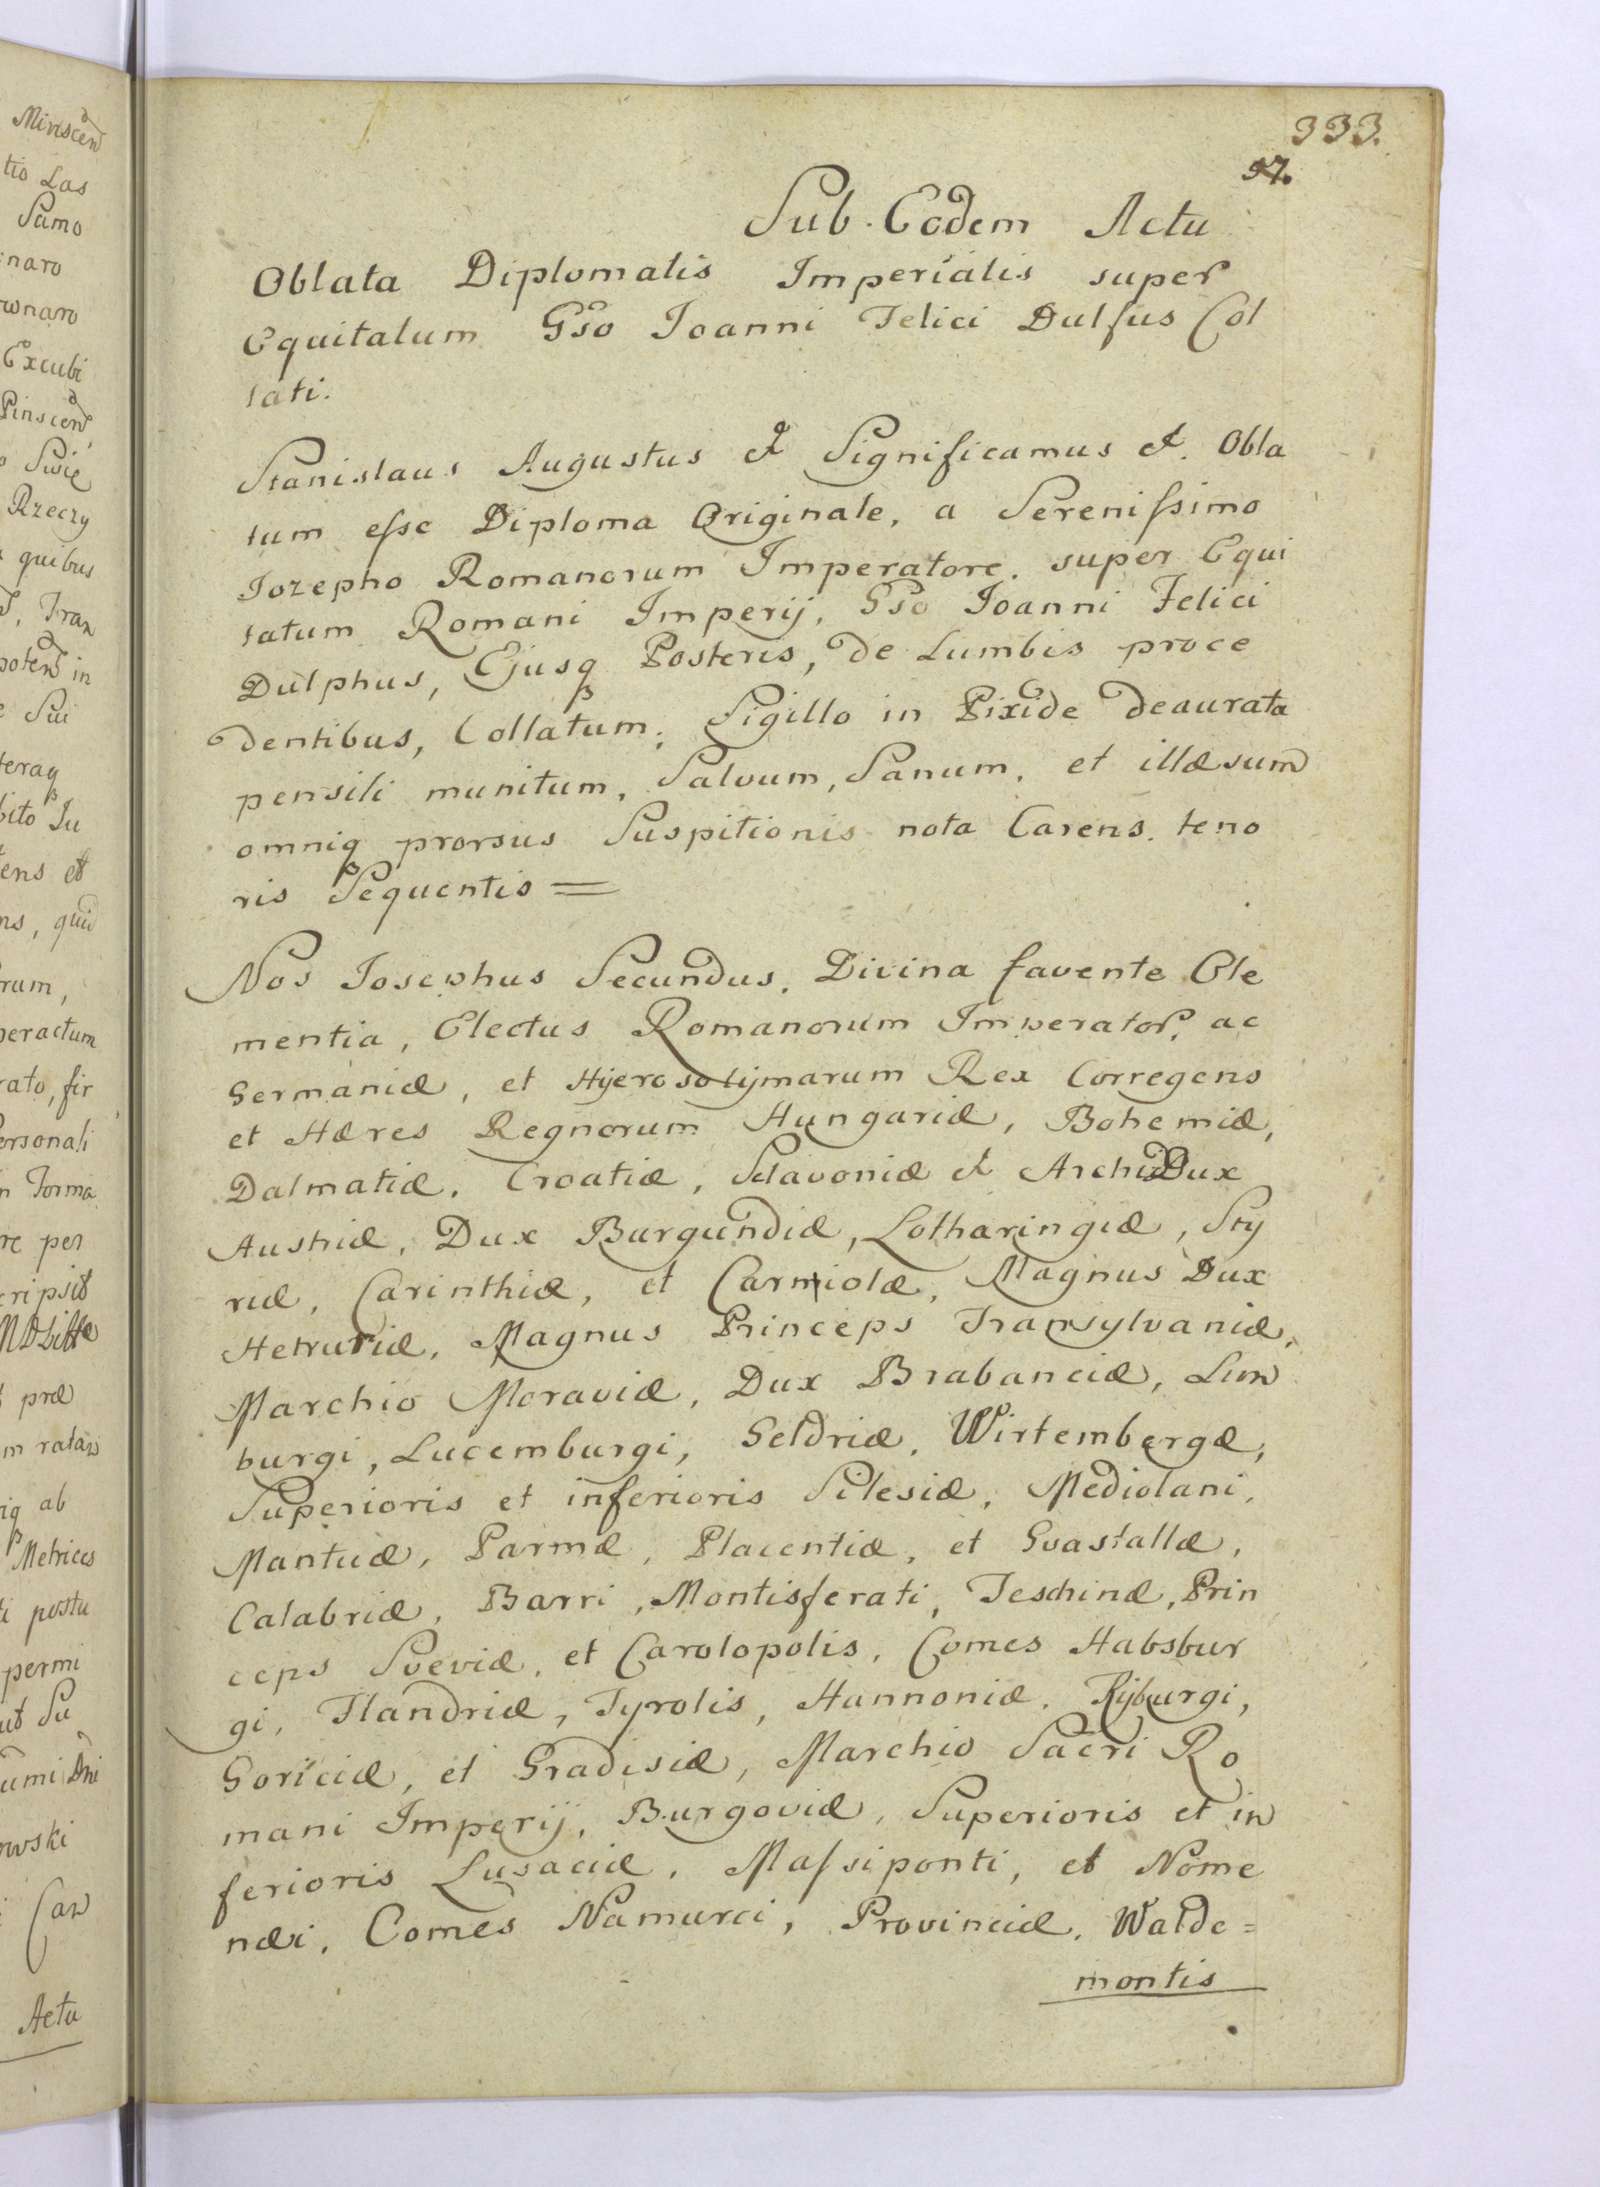 Minscen
tio Las
Samo
naro
wnaro
Excubi
Pinscen
Swię
Rzeczy
quibus
Fran
poten in
Sui
teraq
bito Ju
tens et
ns, quid
rum,
peractum
rato, fir
Personali
n Forma
re per
cripsit
præ
m ratas
riq ab
Metrices
ti postu
permi
ut Su
umi Dni
owski
Can
Actu
333.
97.
Sub Eodem Actu
Oblata Diplomatis Imperialis super
Equitatum Gso Joanni Felici Dulfus Col
lati.
Stanislaus Augustus et Significamus et. Obla
tum esse Diploma Originale, a Serenissimo
Jozepho Romanorum Imperatore. super Equi
tatum Romani Imperij, Gso Joanni Felici
Dulphus, Ejusq Posteris, de Lumbis proce
dentibus, Collatum, Sigillo in Pixide deaurata
pensili munitum, Salvum, Sanum, et illæsum
omniq prorsus Suspitionis nota Carens. teno
ris Sequentis =
Nos Josephus Secundus, Divina favente Cle
mentia, Electus Romanorum Imperator, ac
Germaniæ, et Hyerosolijmarum Rex Corregens
et Hæres Regnorum Hungariæ, Bohemiæ,
Dalmatiæ, Croatiæ, Sclavoniæ et ArchiDux
Austriæ, Dux Burgundiæ, Lotharingiæ, Sty
riæ, Carinthiæ, et Carniolæ, Magnus Dux
Hetruriæ, Magnus Princeps Transylvaniæ,
Marchio Moraviæ, Dux Brabanciæ, Lim
burgi, Lucemburgi, Geldriæ, Wirtembergæ,
Superioris et inferioris Silesiæ, Mediolani,
Mantuæ, Parmæ, Placentiæ, et Gvastallæ,
Calabriæ, Barri, Montisferati, Teschinæ, Prin
ceps Sveviæ, et Carolopolis, Comes Habsbur
gi, Flandriæ, Tyrolis, Hannoniæ, Kijburgi,
Goriciæ, et Gradisiæ, Marchio Sacri Ro
mani Imperij, Burgoviæ, Superioris et in
ferioris Lusaciæ, Massiponti, et Nome
næi, Comes Namurci, Provinciæ, Walde=
montis